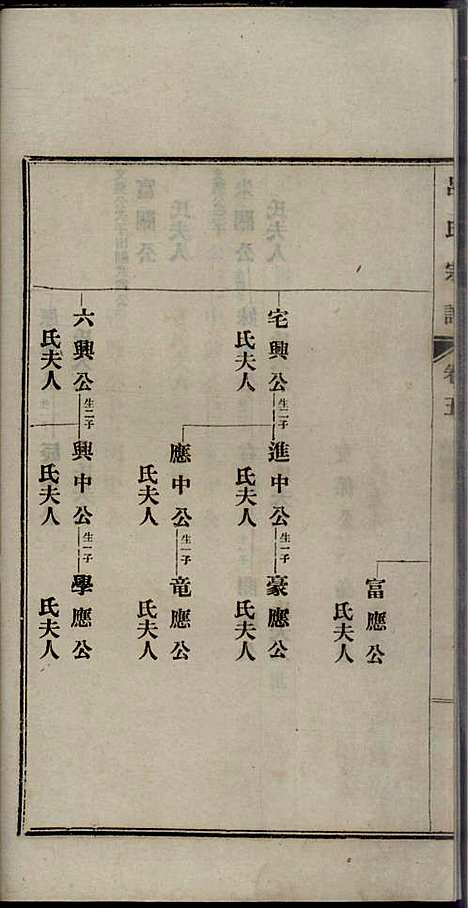 呂氏宗譜
卷五
富應公
氏夫人
宅興公 生二子
氏夫人
進中公 生一子
氏夫人
豪應公
氏夫人
應中公 生一子
氏夫人
竜應公
氏夫人
六興公 生二子
氏夫人
興中公 生一子
氏夫人
學應公
氏夫人